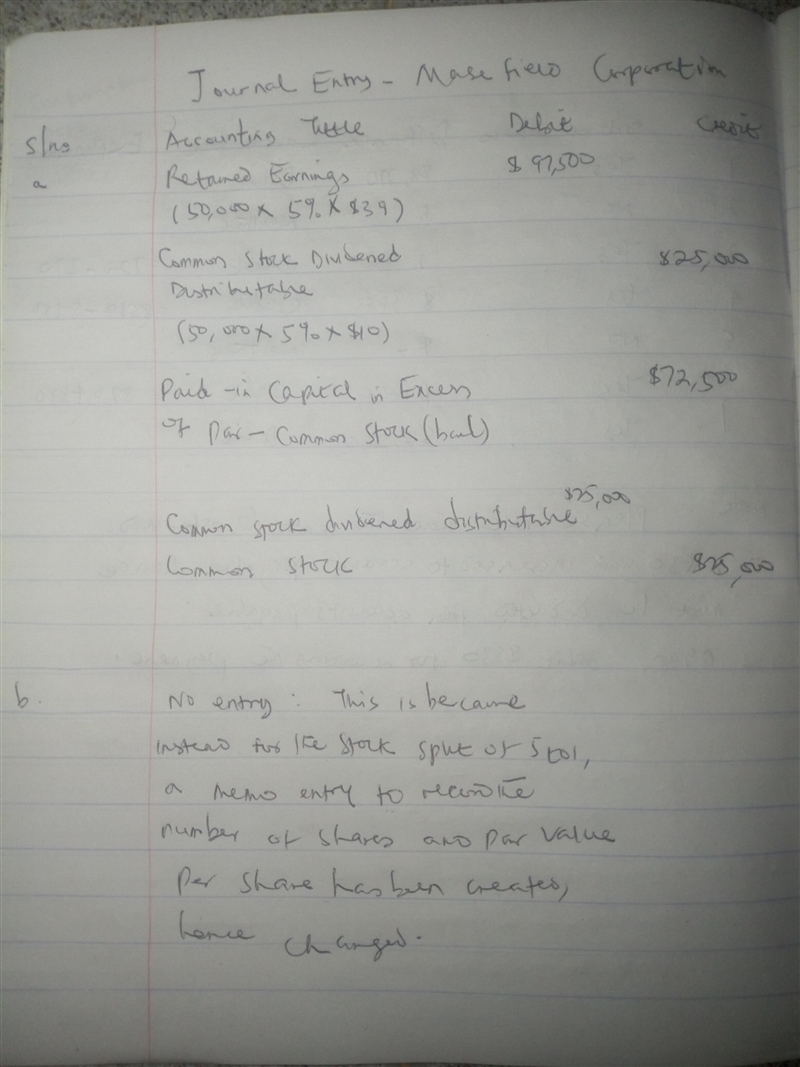 Journal Entry - Masefield Corporation
S/no Accounting Tittle Debit Credit
a Retained Earnings $97,500
(50,000 x 5% x $39)
Common Stock Dividened $25,000
Distributable
(50,000 x 5% x $10)
Paid-in Capital in Excess $72,500
of Par - Common Stock (bal)
Common stock dividened distributable $25,000
Common stock $25,000
b. No entry: This is because
instead for the stock split of 5 to 1,
a memo entry to
number of shares and par value
per share has been created,
hence changed.